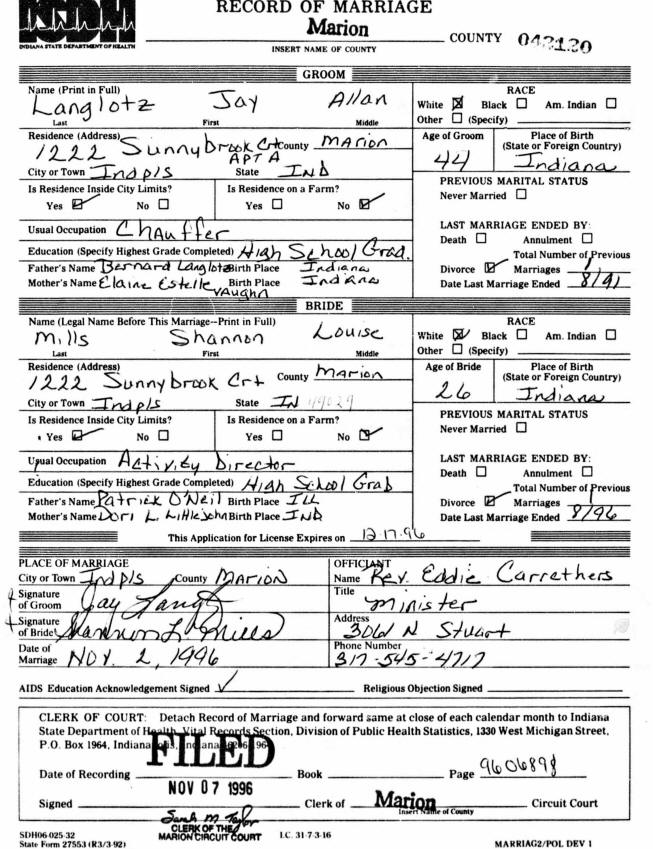 RECORD OF MARRIAGE
ISDH
INDIANA STATE DEPARTMENT OF HEALTH
Marion COUNTY 042120
INSERT NAME OF COUNTY
GROOM
Name (Print in Full)
Langlotz Jay Allan
Last First Middle
RACE
White ☒ Black ☐ Am. Indian ☐
Other ☐ (Specify)
Residence (Address) 1222 Sunnybrook Crt County Marion
APT A
City or Town Indpls State IND
Age of Groom 44
Place of Birth
(State or Foreign Country)
Indiana
Is Residence Inside City Limits?
Yes ☑ No ☐
Is Residence on a Farm?
Yes ☐ No ☑
PREVIOUS MARITAL STATUS
Never Married ☐
Usual Occupation Chauffer
Education (Specify Highest Grade Completed) High School Grad.
Father's Name Bernard Langlotz Birth Place Indiana
Mother's Name Elaine Estelle Vaughn Birth Place Indiana
LAST MARRIAGE ENDED BY:
Death ☐ Annulment ☐
Total Number of Previous
Divorce ☑ Marriages 1
Date Last Marriage Ended 8/91
BRIDE
Name (Legal Name Before This Marriage--Print in Full)
Mills Shannon Louise
Last First Middle
RACE
White ☒ Black ☐ Am. Indian ☐
Other ☐ (Specify)
Residence (Address)
1222 Sunnybrook Crt County Marion
City or Town Indpls State IN
Age of Bride
26
Place of Birth
(State or Foreign Country)
Indiana
Is Residence Inside City Limits?
Yes ☑ No ☐
Is Residence on a Farm?
Yes ☐ No ☑
PREVIOUS MARITAL STATUS
Never Married ☐
Usual Occupation Activity Director
Education (Specify Highest Grade Completed) High School Grad
Father's Name Patrick O'Neil Birth Place ILL
Mother's Name Dori L. Littlejohn Birth Place IND
LAST MARRIAGE ENDED BY:
Death ☐ Annulment ☐
Total Number of Previous
Divorce ☑ Marriages 1
Date Last Marriage Ended 8/96
This Application for License Expires on 12-17-96
PLACE OF MARRIAGE
City or Town Indpls County MARION
Signature
of Groom Jay Langlotz
Signature
of Bride Shannon L. Mills
Date of
Marriage NOV. 2, 1996
OFFICIANT
Name Rev. Eddie Carrethers
Title
Minister
Address
3061 N Stuart
Phone Number
317-545-4717
AIDS Education Acknowledgement Signed ✓ Religious Objection Signed
CLERK OF COURT: Detach Record of Marriage and forward same at close of each calendar month to Indiana
State Department of Health, Vital Records Section, Division of Public Health Statistics, 1330 West Michigan Street,
P.O. Box 1964, Indianapolis, Indiana 46206-1964
FILED
Date of Recording Book Page 9606898
NOV 07 1996
Signed Clerk of Marion Circuit Court
Insert Name of County
Sarah M. Taylor
CLERK OF THE
MARION CIRCUIT COURT
I.C. 31-7-3-16
SDH06-025-32
State Form 27553 (R3/3-92)
MARRIAG2/POL DEV 1